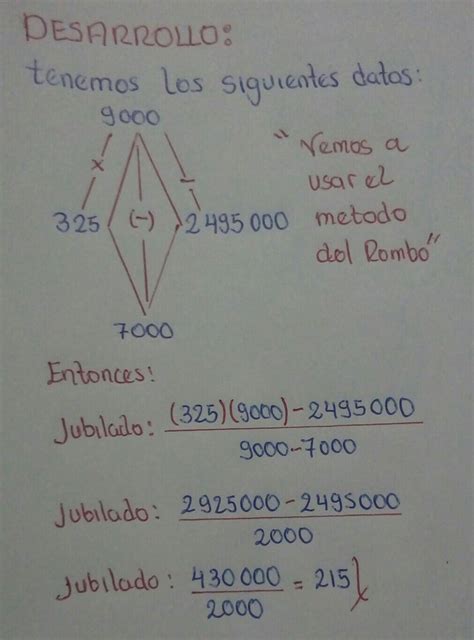 DESARROLLO:
tenemos los siguientes datos:
9000
x
-
325 (-) 2495000
7000
"Vemos a
usar el
metodo
del Rombo"
Entonces:
Jubilado: (325)(9000) - 2495000
9000-7000
Jubilado: 2925000 - 2495000
2000
Jubilado: 430000 = 215
2000